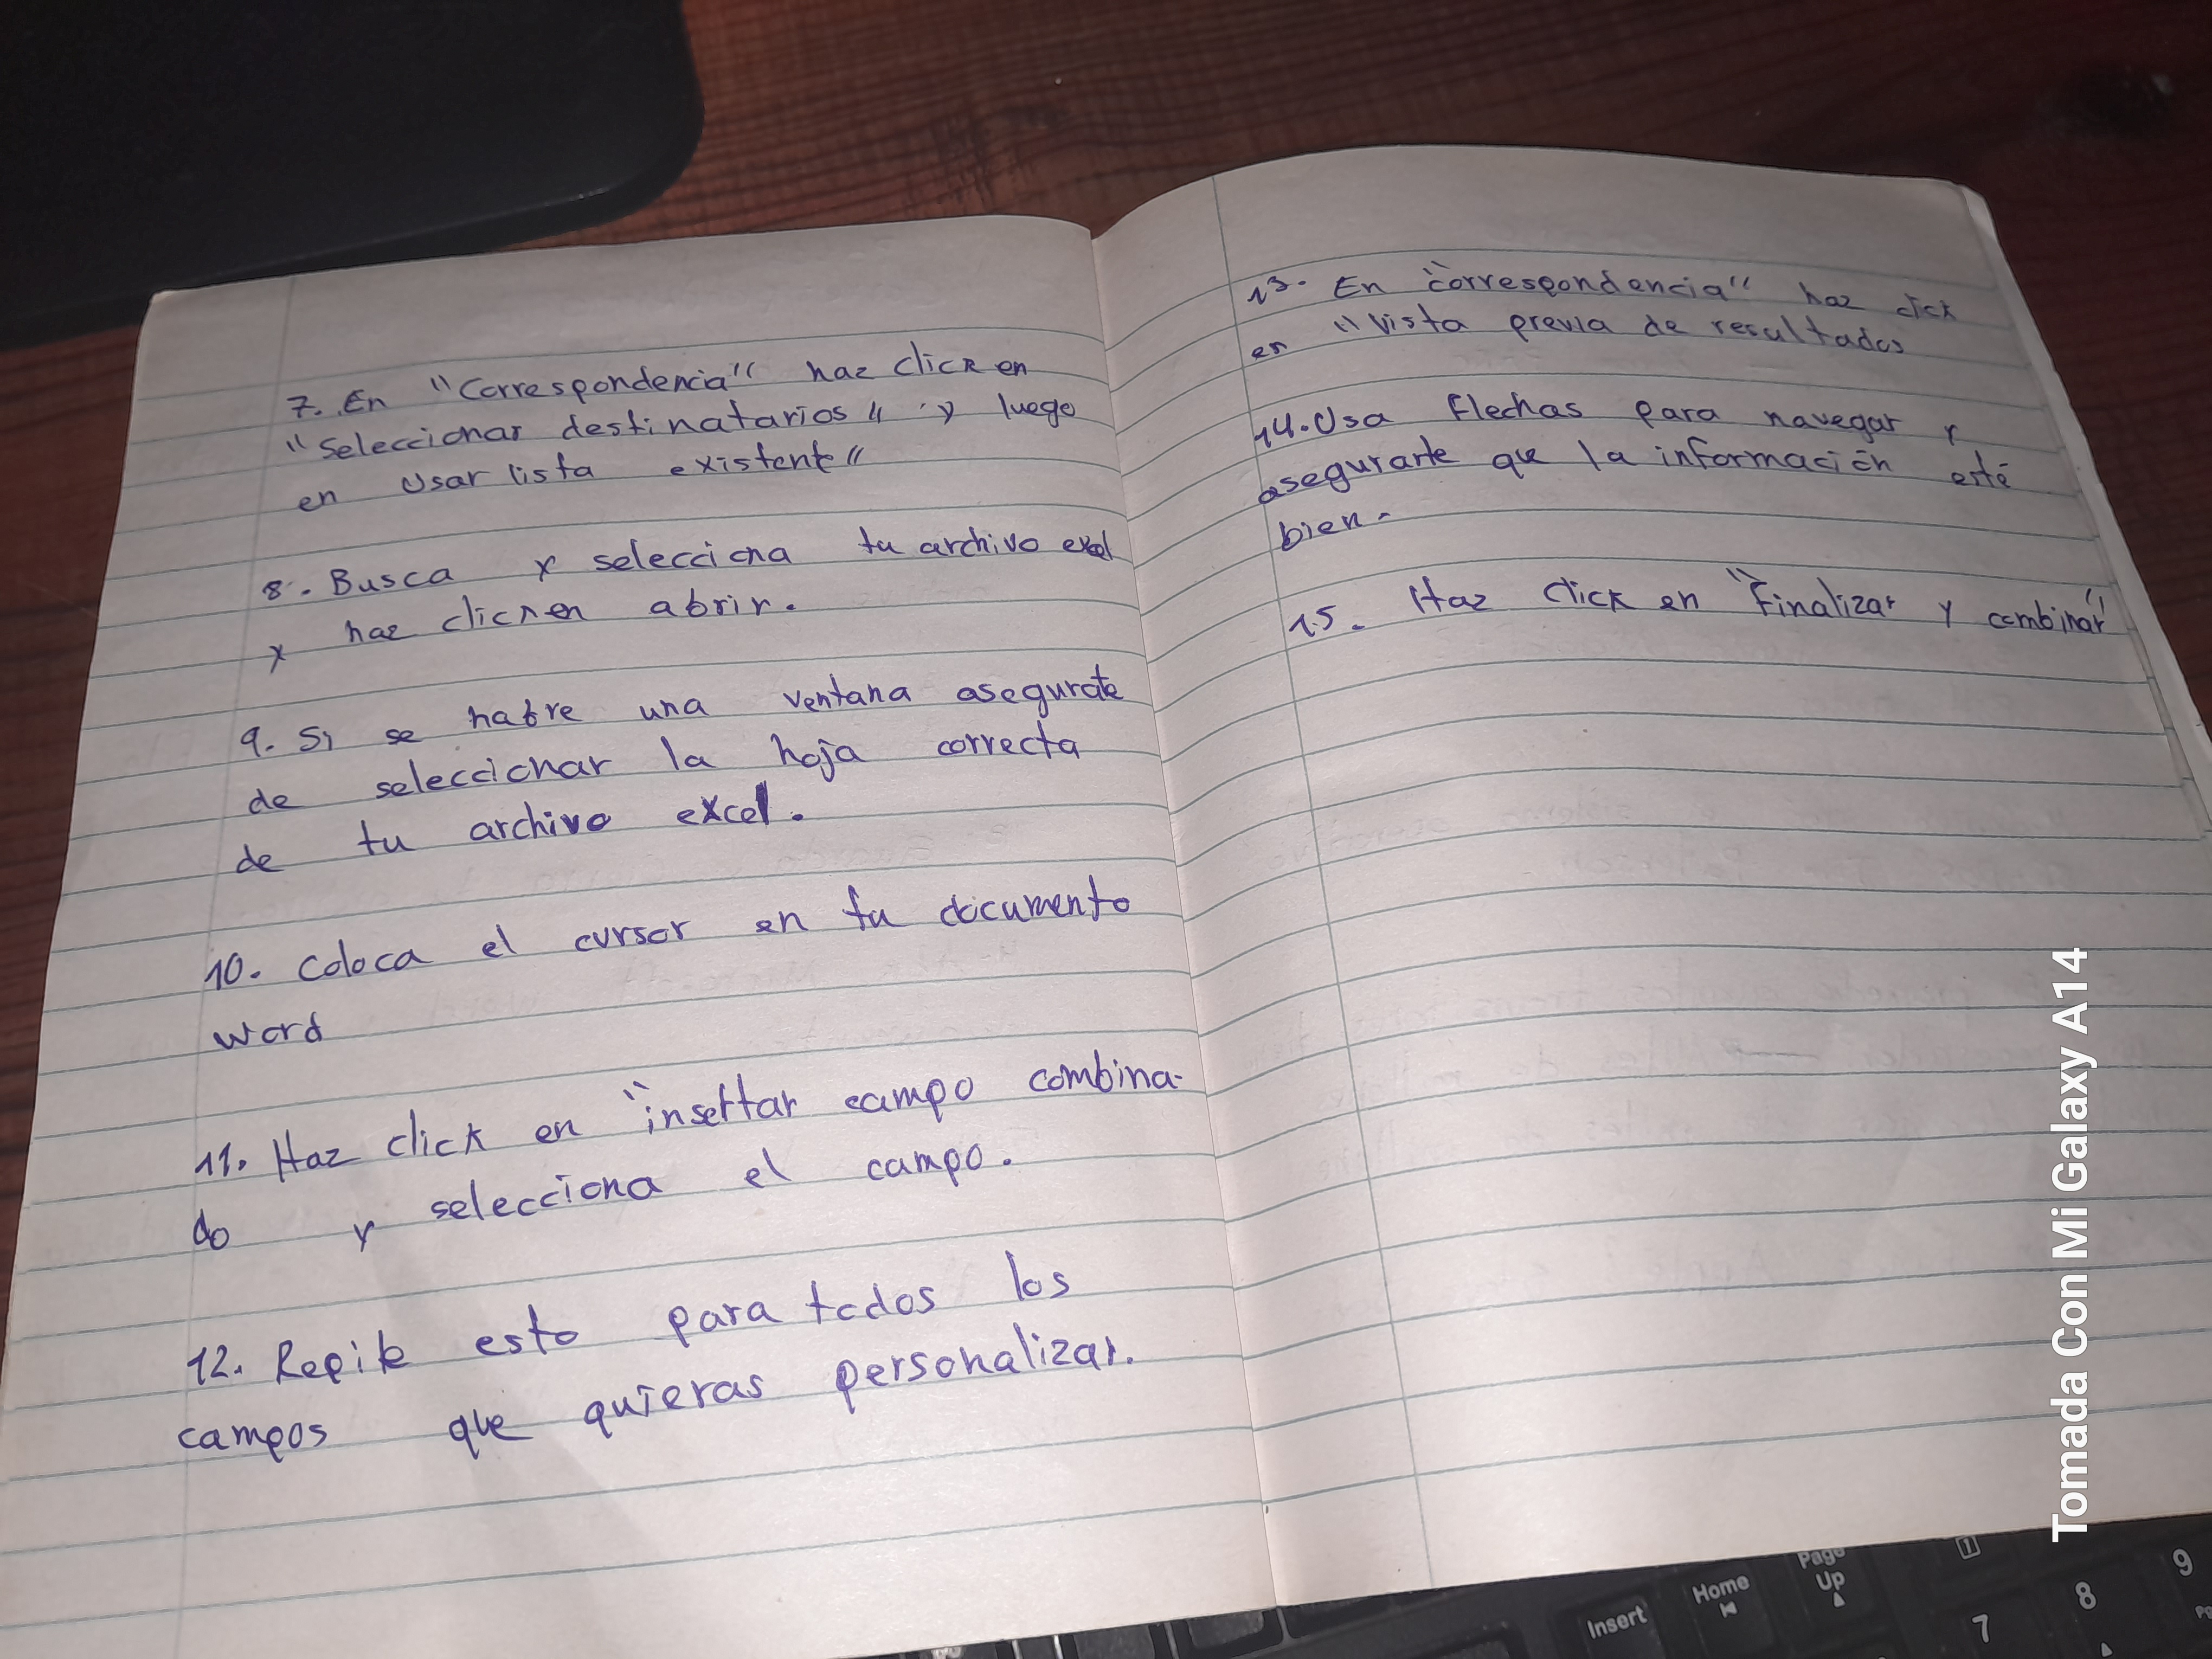 7. En "Correspondencia" haz click en
"Seleccionar destinatarios" y luego
en Usar lista existente"
8. Busca y selecciona tu archivo exel
y haz click en abrir.
9. Si se habre una ventana asegurate
de seleccionar la hoja correcta
de tu archivo excel.
10. Coloca el cursor en tu documento
word
11. Haz click en "insertar campo combina-
do y selecciona el campo.
12. Repite esto para todos los
campos que quieras personalizar.
13. En "correspondencia" haz click
en "Vista previa de resultados
14. Usa flechas para navegar y
asegurarte que la información esté
bien.
15. Haz click en "Finalizar y combinar"
Tomada Con Mi Galaxy A14
Insert
Home
Page
Up
7
8
9